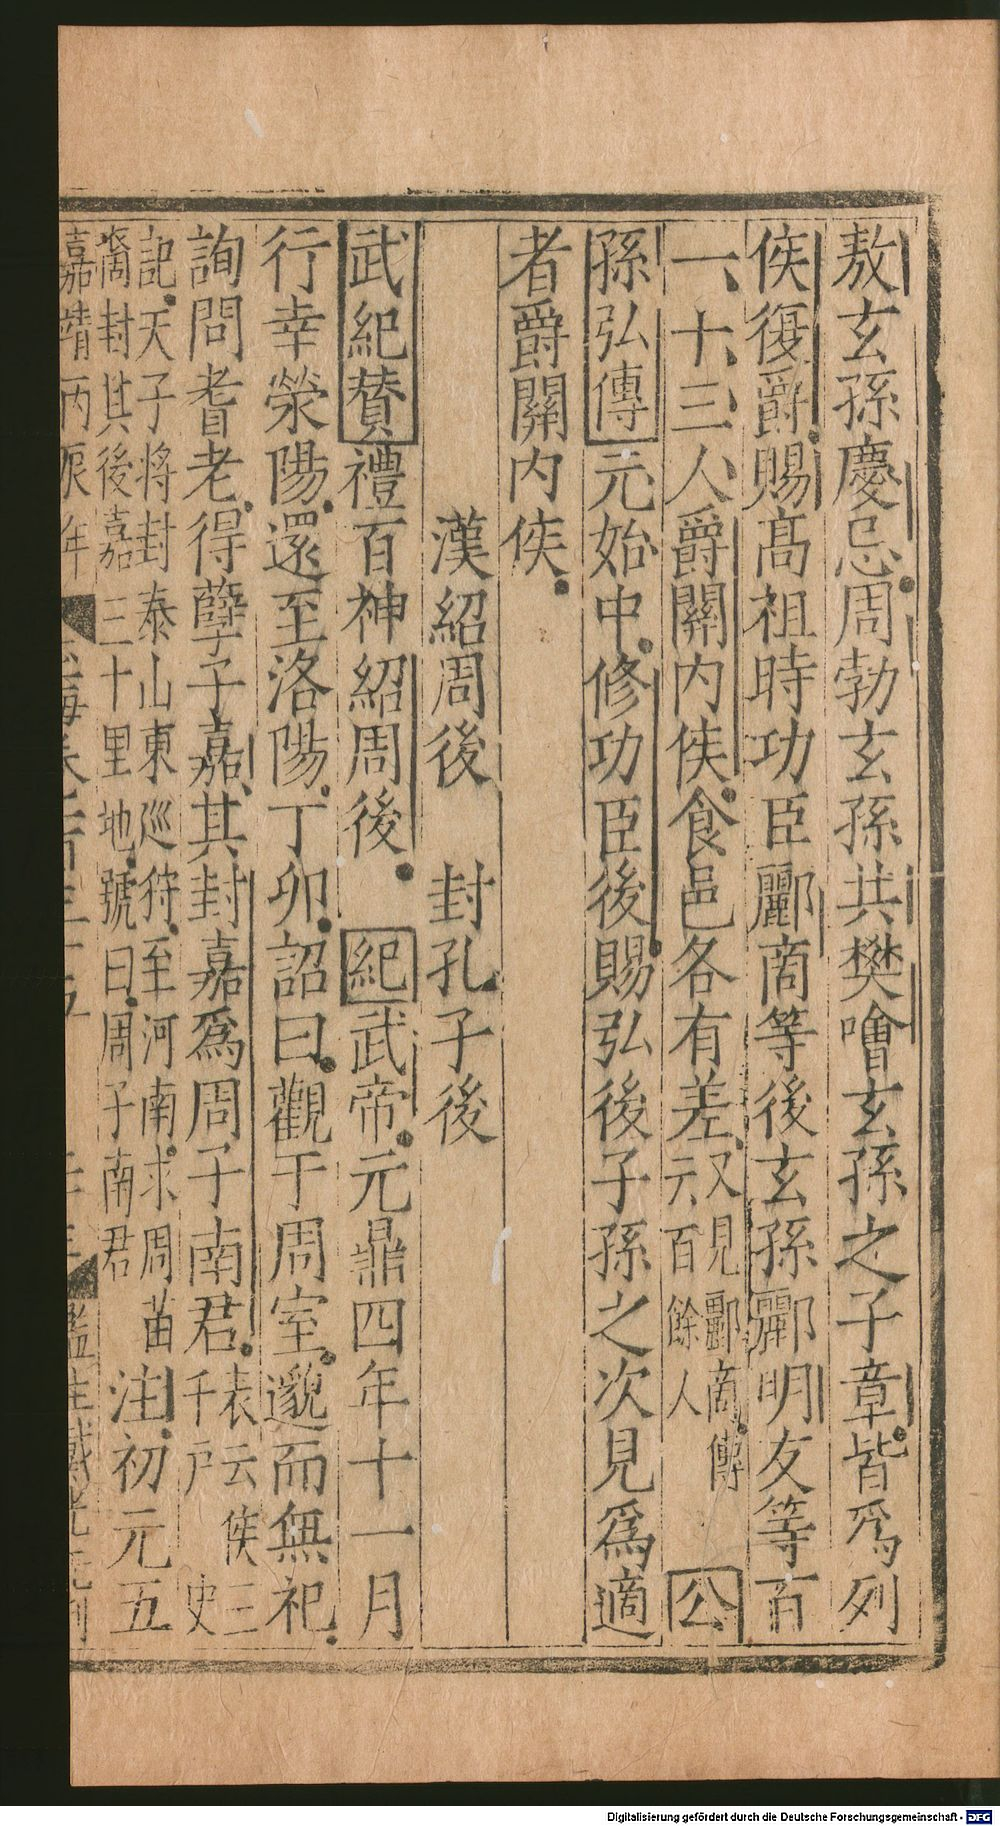 敖玄孫慶忌周勃玄孫共樊噲玄孫之子章皆爲列
侯復爵賜髙祖時功臣酈商等後玄孫酈明友等百
一十三人爵關内侯食邑各有差又見酈商傳六百餘人公
孫弘傳元始中修功臣後賜弘後子孫之次見爲適
者爵關内侯
漢紹周後 封孔子後
武紀贊禮百神紹周後 紀武帝元鼎四年十一月
行幸滎陽還至洛陽丁卯詔曰觀于周室邈而無祀
詢問耆老得孽子嘉其封嘉爲周子南君表云侯三千戸史
記天子將封泰山東巡狩至河南求周苗裔封其後嘉三十里地號曰周子南君注初元五
嘉靖丙辰年
監生戴
Digitalisierung gefördert durch die Deutsche Forschungsgemeinschaft - DFG